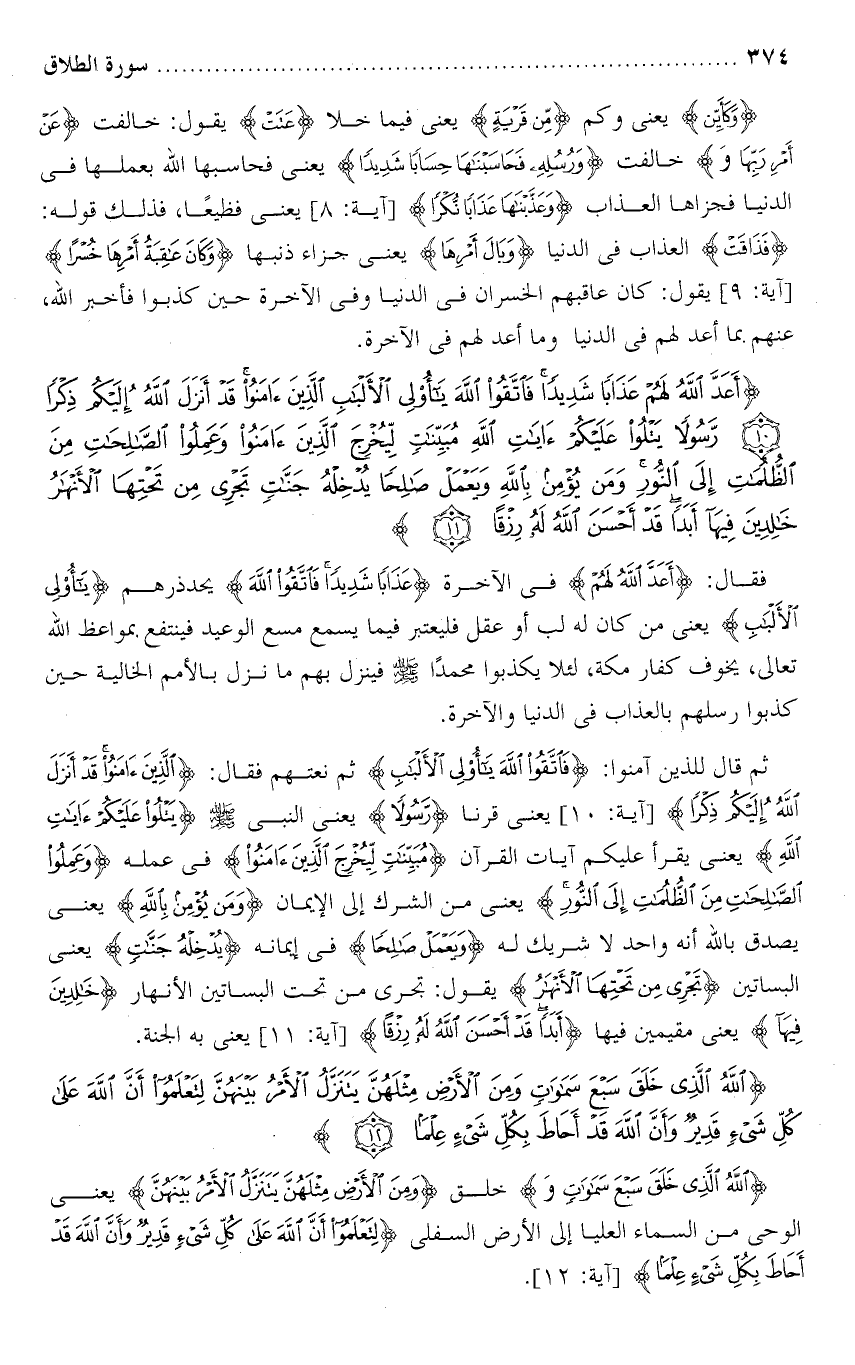 ٣٧٤ ........................................................................ سورة الطلاق
﴿وَكَأَيِّن﴾ يعنى وكم ﴿مِّن قَرْيَةٍ﴾ يعنى فيما خلا ﴿عَتَتْ﴾ يقول: خالفت ﴿عَنْ
أَمْرِ رَبِّهَا وَ﴾ خالفت ﴿وَرُسُلِهِۦ فَحَاسَبْنَٰهَا حِسَابًا شَدِيدًا﴾ يعنى فحاسبها الله بعملها فى
الدنيا فجزاها العذاب ﴿وَعَذَّبْنَٰهَا عَذَابًا نُّكْرًا﴾ [آية: ٨] يعنى فظيعًا، فذلك قوله:
﴿فَذَاقَتْ﴾ العذاب فى الدنيا ﴿وَبَالَ أَمْرِهَا﴾ يعنى جزاء ذنبها ﴿وَكَانَ عَٰقِبَةُ أَمْرِهَا خُسْرًا﴾
[آية: ٩] يقول: كان عاقبهم الخسران فى الدنيا وفى الآخرة حين كذبوا فأخبر الله،
عنهم بما أعد لهم فى الدنيا وما أعد لهم فى الآخرة.
﴿أَعَدَّ ٱللَّهُ لَهُمْ عَذَابًا شَدِيدًا ۖ فَٱتَّقُوا۟ ٱللَّهَ يَٰٓأُو۟لِى ٱلْأَلْبَٰبِ ٱلَّذِينَ ءَامَنُوا۟ ۚ قَدْ أَنزَلَ ٱللَّهُ إِلَيْكُمْ ذِكْرًا
(١٠) رَّسُولًا يَتْلُوا۟ عَلَيْكُمْ ءَايَٰتِ ٱللَّهِ مُبَيِّنَٰتٍ لِّيُخْرِجَ ٱلَّذِينَ ءَامَنُوا۟ وَعَمِلُوا۟ ٱلصَّٰلِحَٰتِ مِنَ
ٱلظُّلُمَٰتِ إِلَى ٱلنُّورِ ۚ وَمَن يُؤْمِنۢ بِٱللَّهِ وَيَعْمَلْ صَٰلِحًا يُدْخِلْهُ جَنَّٰتٍ تَجْرِى مِن تَحْتِهَا ٱلْأَنْهَٰرُ
خَٰلِدِينَ فِيهَآ أَبَدًا ۖ قَدْ أَحْسَنَ ٱللَّهُ لَهُۥ رِزْقًا (١١) ﴾
فقال: ﴿أَعَدَّ ٱللَّهُ لَهُمْ﴾ فى الآخرة ﴿عَذَابًا شَدِيدًا ۖ فَٱتَّقُوا۟ ٱللَّهَ﴾ يحذرهم ﴿يَٰٓأُو۟لِى
ٱلْأَلْبَٰبِ﴾ يعنى من كان له لب أو عقل فليعتبر فيما يسمع مسع الوعيد فينتفع بمواعظ الله
تعالى، يخوف كفار مكة، لئلا يكذبوا محمدًا ﷺ فينزل بهم ما نزل بالأمم الخالية حين
كذبوا رسلهم بالعذاب فى الدنيا والآخرة.
ثم قال للذين آمنوا: ﴿فَٱتَّقُوا۟ ٱللَّهَ يَٰٓأُو۟لِى ٱلْأَلْبَٰبِ﴾ ثم نعتهم فقال: ﴿ٱلَّذِينَ ءَامَنُوا۟ ۚ قَدْ أَنزَلَ
ٱللَّهُ إِلَيْكُمْ ذِكْرًا﴾ [آية: ١٠] يعنى قرنا ﴿رَّسُولًا﴾ يعنى النبى ﷺ ﴿يَتْلُوا۟ عَلَيْكُمْ ءَايَٰتِ
ٱللَّهِ﴾ يعنى يقرأ عليكم آيات القرآن ﴿مُبَيِّنَٰتٍ لِّيُخْرِجَ ٱلَّذِينَ ءَامَنُوا۟﴾ فى عمله ﴿وَعَمِلُوا۟
ٱلصَّٰلِحَٰتِ مِنَ ٱلظُّلُمَٰتِ إِلَى ٱلنُّورِ ۚ﴾ يعنى من الشرك إلى الإيمان ﴿وَمَن يُؤْمِنۢ بِٱللَّهِ﴾ يعنى
يصدق بالله أنه واحد لا شريك له ﴿وَيَعْمَلْ صَٰلِحًا﴾ فى إيمانه ﴿يُدْخِلْهُ جَنَّٰتٍ﴾ يعنى
البساتين ﴿تَجْرِى مِن تَحْتِهَا ٱلْأَنْهَٰرُ﴾ يقول: تجرى من تحت البساتين الأنهار ﴿خَٰلِدِينَ
فِيهَآ﴾ يعنى مقيمين فيها ﴿أَبَدًا ۖ قَدْ أَحْسَنَ ٱللَّهُ لَهُۥ رِزْقًا﴾ [آية: ١١] يعنى به الجنة.
﴿ٱللَّهُ ٱلَّذِى خَلَقَ سَبْعَ سَمَٰوَٰتٍ وَمِنَ ٱلْأَرْضِ مِثْلَهُنَّ يَتَنَزَّلُ ٱلْأَمْرُ بَيْنَهُنَّ لِتَعْلَمُوٓا۟ أَنَّ ٱللَّهَ عَلَىٰ
كُلِّ شَىْءٍ قَدِيرٌ وَأَنَّ ٱللَّهَ قَدْ أَحَاطَ بِكُلِّ شَىْءٍ عِلْمًۢا (١٢) ﴾
﴿ٱللَّهُ ٱلَّذِى خَلَقَ سَبْعَ سَمَٰوَٰتٍ وَ﴾ خلق ﴿وَمِنَ ٱلْأَرْضِ مِثْلَهُنَّ يَتَنَزَّلُ ٱلْأَمْرُ بَيْنَهُنَّ﴾ يعنى
الوحى من السماء العليا إلى الأرض السفلى ﴿لِتَعْلَمُوٓا۟ أَنَّ ٱللَّهَ عَلَىٰ كُلِّ شَىْءٍ قَدِيرٌ وَأَنَّ ٱللَّهَ قَدْ
أَحَاطَ بِكُلِّ شَىْءٍ عِلْمًۢا﴾ [آية: ١٢].